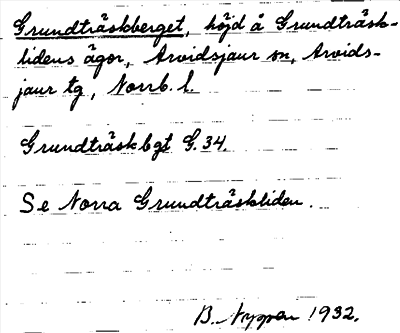 Grundträskberget, höjd å Grundträsk-
lidens ägor, Arvidsjaur sn, Arvids-
jaur tg, Norrb. l.
Grundträskbgt G. 34.
Se Norra Grundträskliden.
B. Nyman 1932.